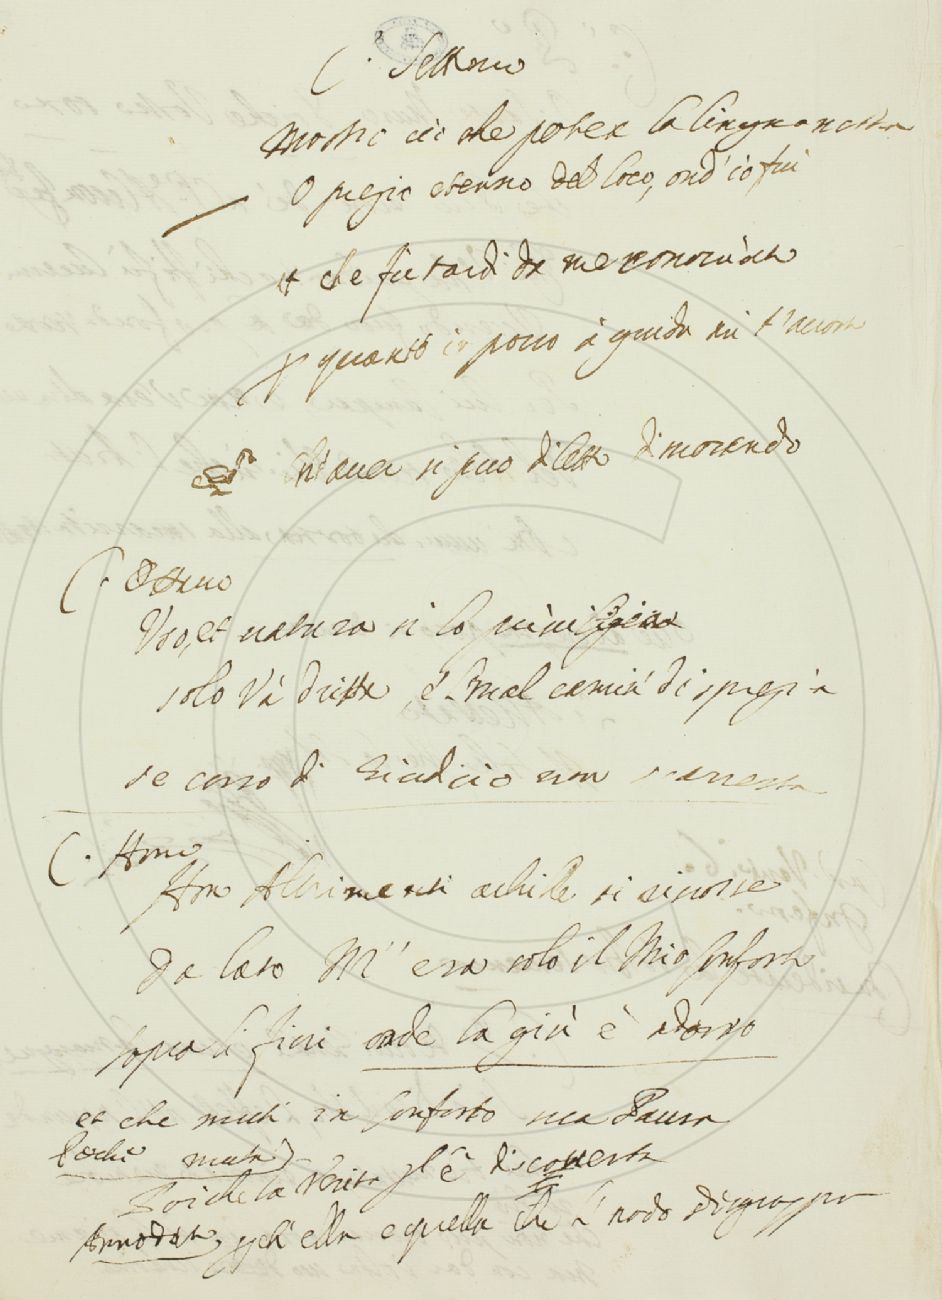 C. Settimo
Mostrò ciò che potea la lingua nostra
O pregio eterno del loco, ond' io fui
et che fù tardi da me conosciuta
p quanto in poco à guida mi t'accosta
ch'avea si puo diletto dimorando
C. Ottavo
Uso, et natura si lo privilegia
solo và dritta, e 'l mal camin' dispregia
se corso di Giudicio non s'arresta
C. Nono
Non Altrimenti achille si riscosse
Da lato M' era solo il Mio Conforto
sopra li fiori onde la giù è adorno
et che muti in conforto mia Paura
Poi che la Verità gl' è discoverta
Annodata, ella e quella che